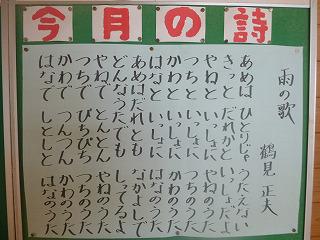 今月の詩
雨の歌
鶴見 正夫
あめは ひとりじゃ うたえない
きっと だれかと いっしょだよ
やねと いっしょに やねのうた
つちと いっしょに つちのうた
かわと いっしょに かわのうた
はなと いっしょに はなのうた
あめはだれとも なかよしで
どんなうたでも しってるよ
やねで とんとん やねのうた
つちで ぴちぴち つちのうた
かわで つんつん かわのうた
はなで しとしと はなのうた